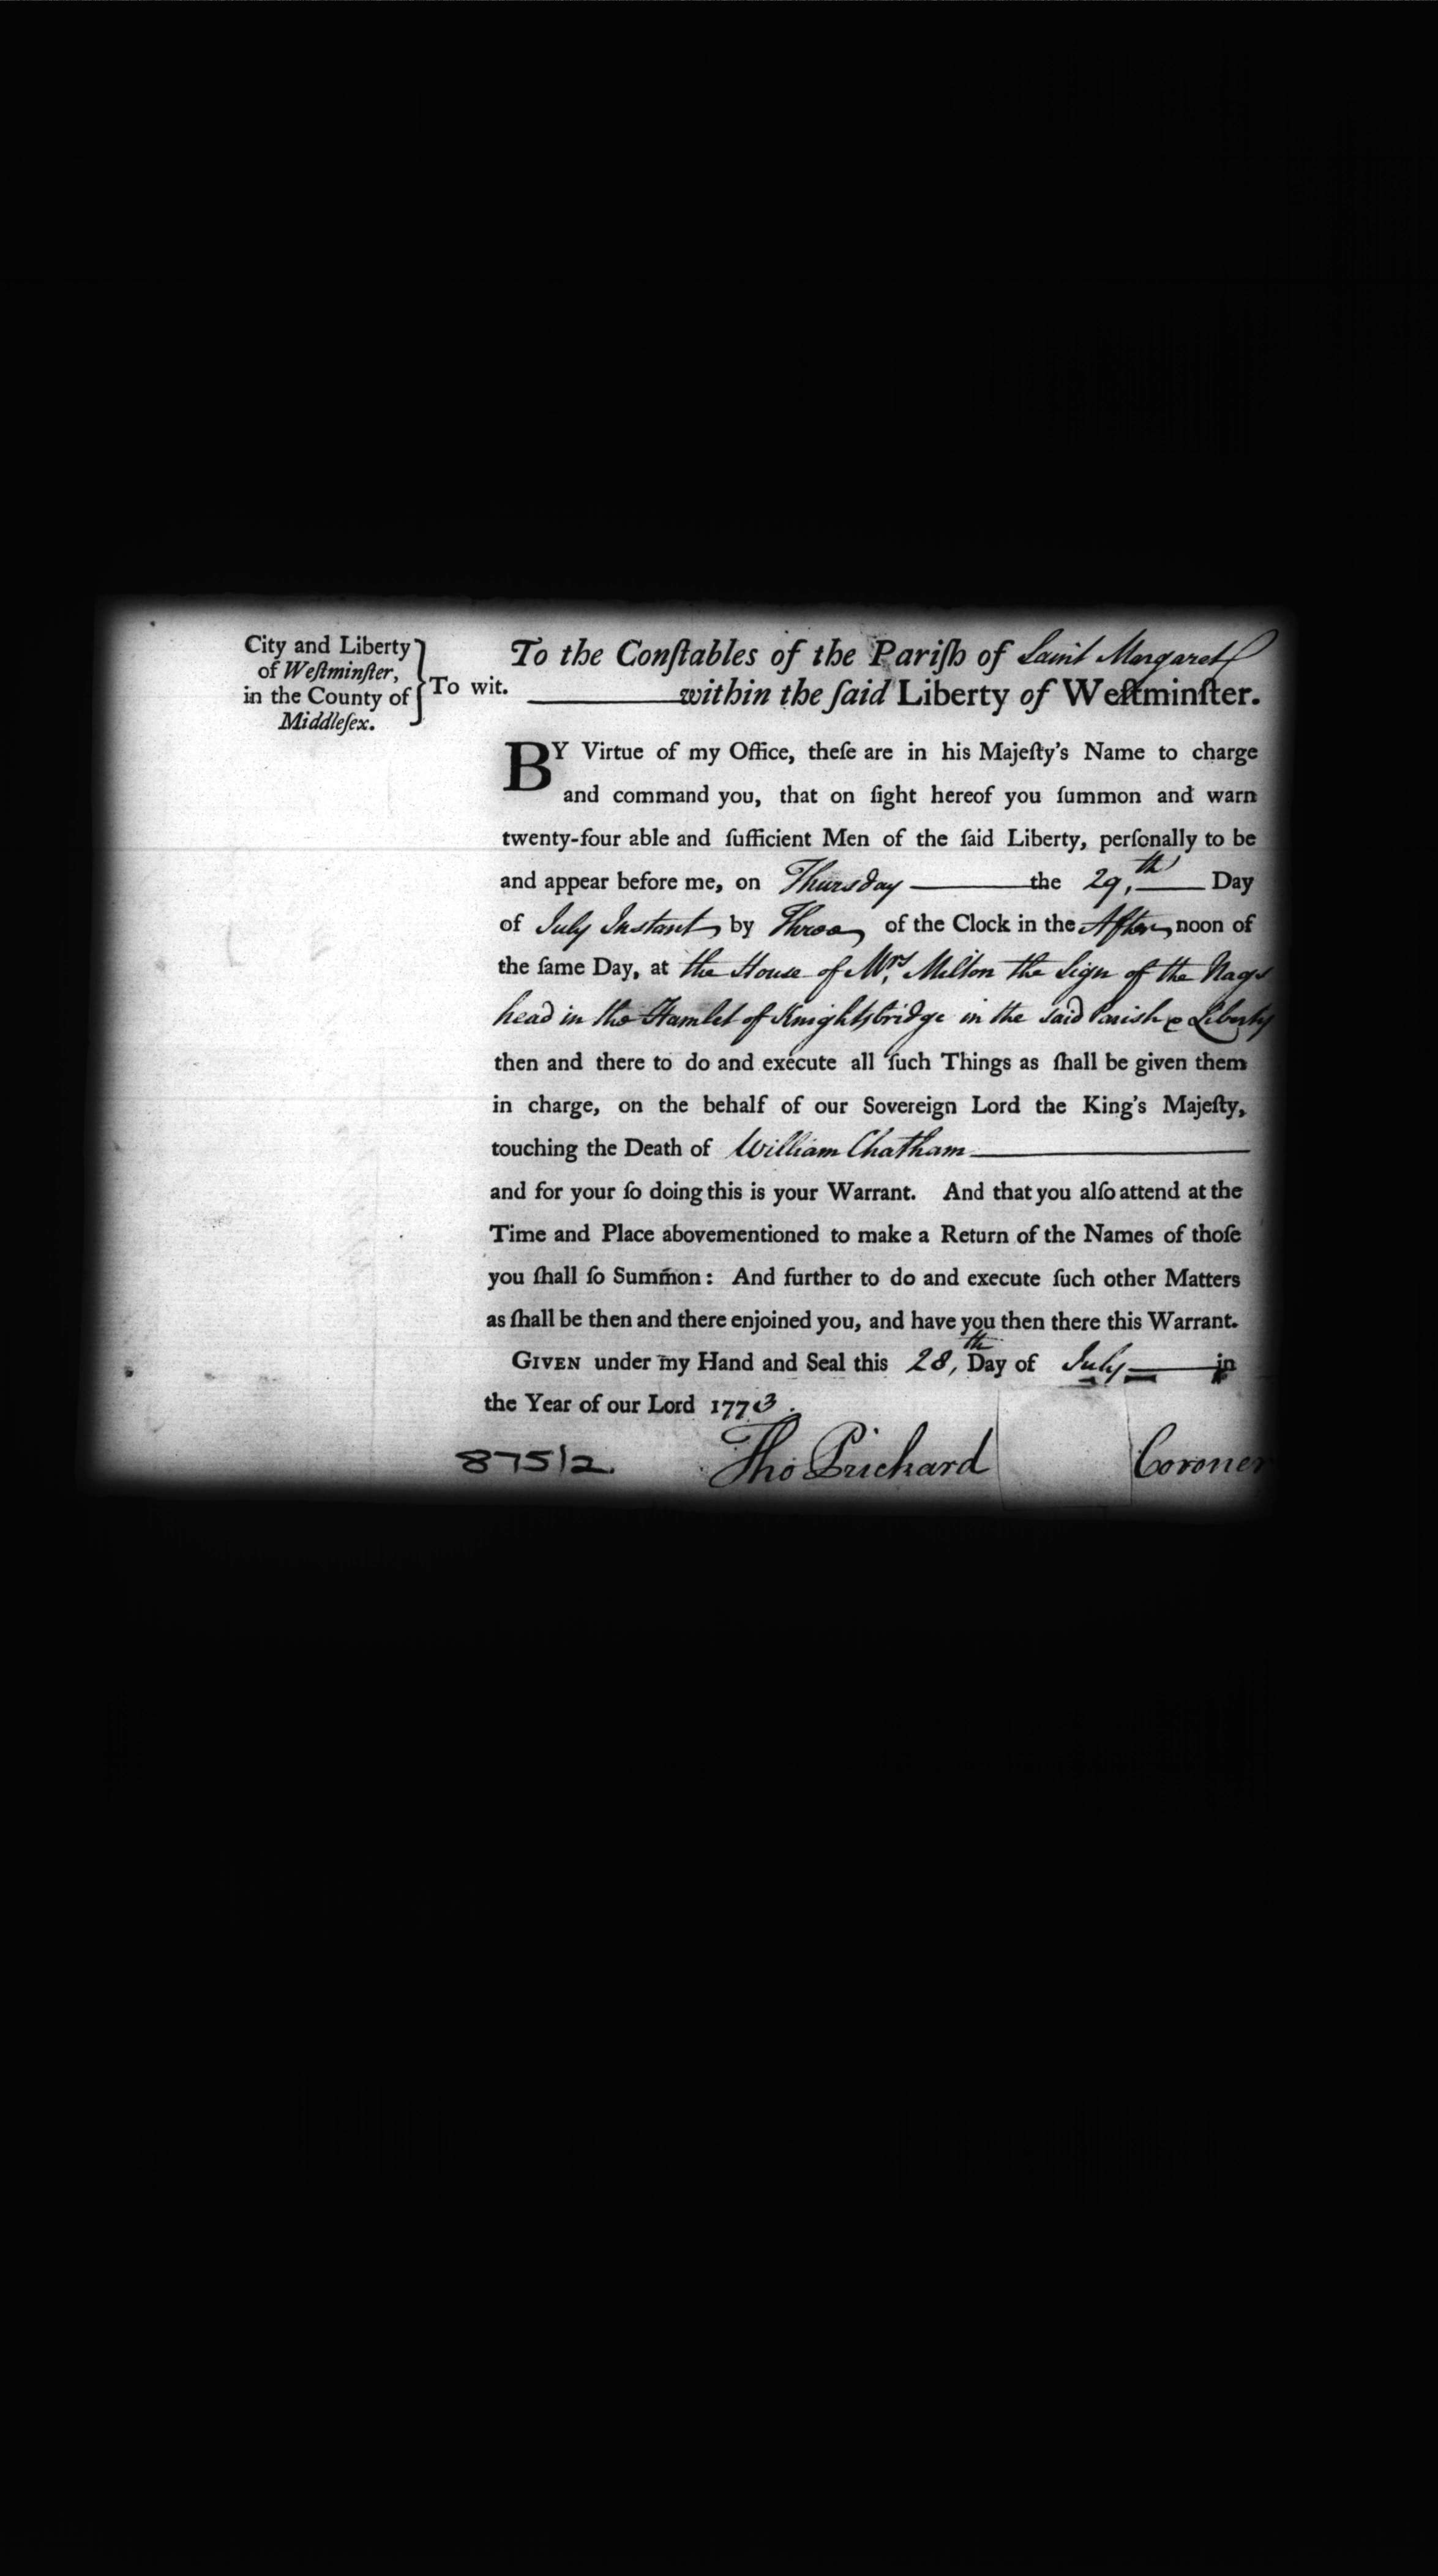 City and Liberty
of Weſtminſter,
in the County of
Middleſex.
To wit.
To the Conſtables of the Pariſh of Saint Margaret
within the ſaid Liberty of Weſtminſter.
BY Virtue of my Office, theſe are in his Majeſty's Name to charge
and command you, that on ſight hereof you ſummon and warn
twenty-four able and ſufficient Men of the ſaid Liberty, perſonally to be
and appear before me, on Thursday the 29,th Day
of July Instant by Three of the Clock in the After noon of
the ſame Day, at the House of Mrs, Milton the Sign of the Nags
head in the Hamlet of Knightsbridge in the said Parish & Liberty
then and there to do and execute all ſuch Things as ſhall be given them
in charge, on the behalf of our Sovereign Lord the King's Majeſty,
touching the Death of William Chatham
and for your ſo doing this is your Warrant. And that you alſo attend at the
Time and Place abovementioned to make a Return of the Names of thoſe
you ſhall ſo Summon: And further to do and execute ſuch other Matters
as ſhall be then and there enjoined you, and have you then there this Warrant.
GIVEN under my Hand and Seal this 28,th Day of July in
the Year of our Lord 1773.
Tho Prichard Coroner
875/2.